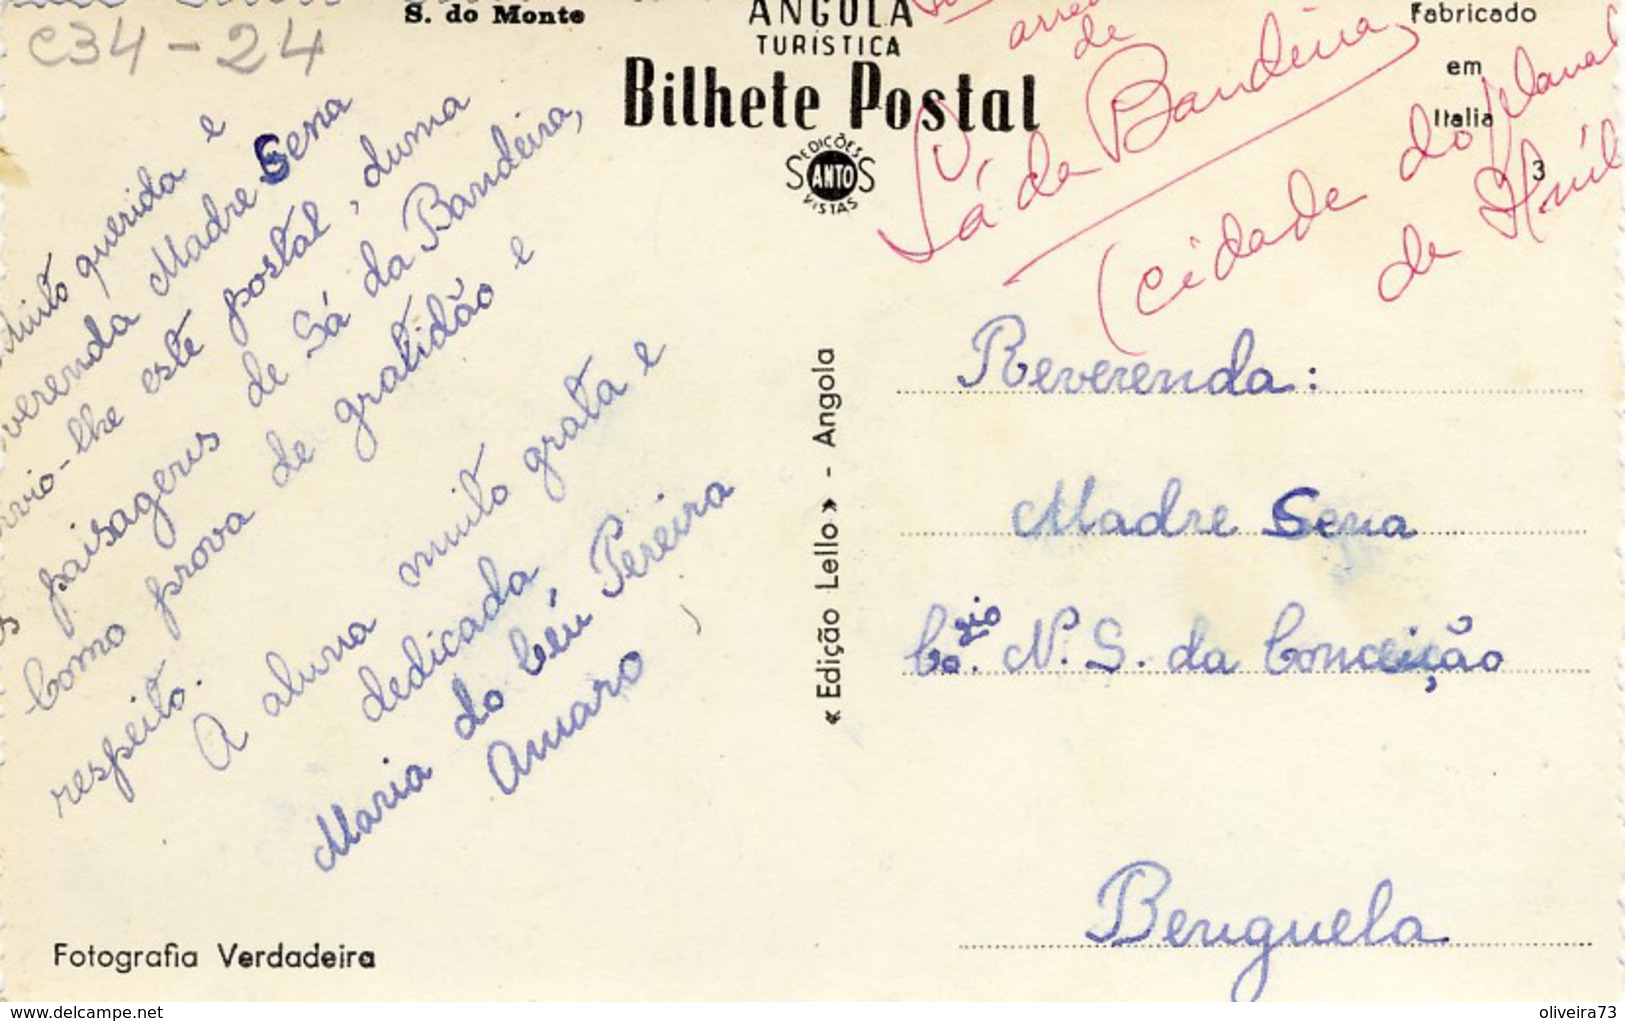 S. do Monte
ANGOLA
TURÍSTICA
Bilhete Postal
EDIÇÕES
SANTOS
VISTAS
Fabricado
em
Italia
3
C34-24
de
Sá da Bandeira
(cidade do planal
de Huíl
Muito querida e
verenda Madre Sena
nvio-lhe este postal, duma
s paisagens de Sá da Bandeira,
Como prova de gratidão e
respeito.
A aluna muito grata e
dedicada
Maria do Céu Pereira
Amaro
« Edição Lello » - Angola
Reverenda:
Madre Sena
Co.gio N. S. da Conceição
Benguela
Fotografia Verdadeira
www.delcampe.net
oliveira73